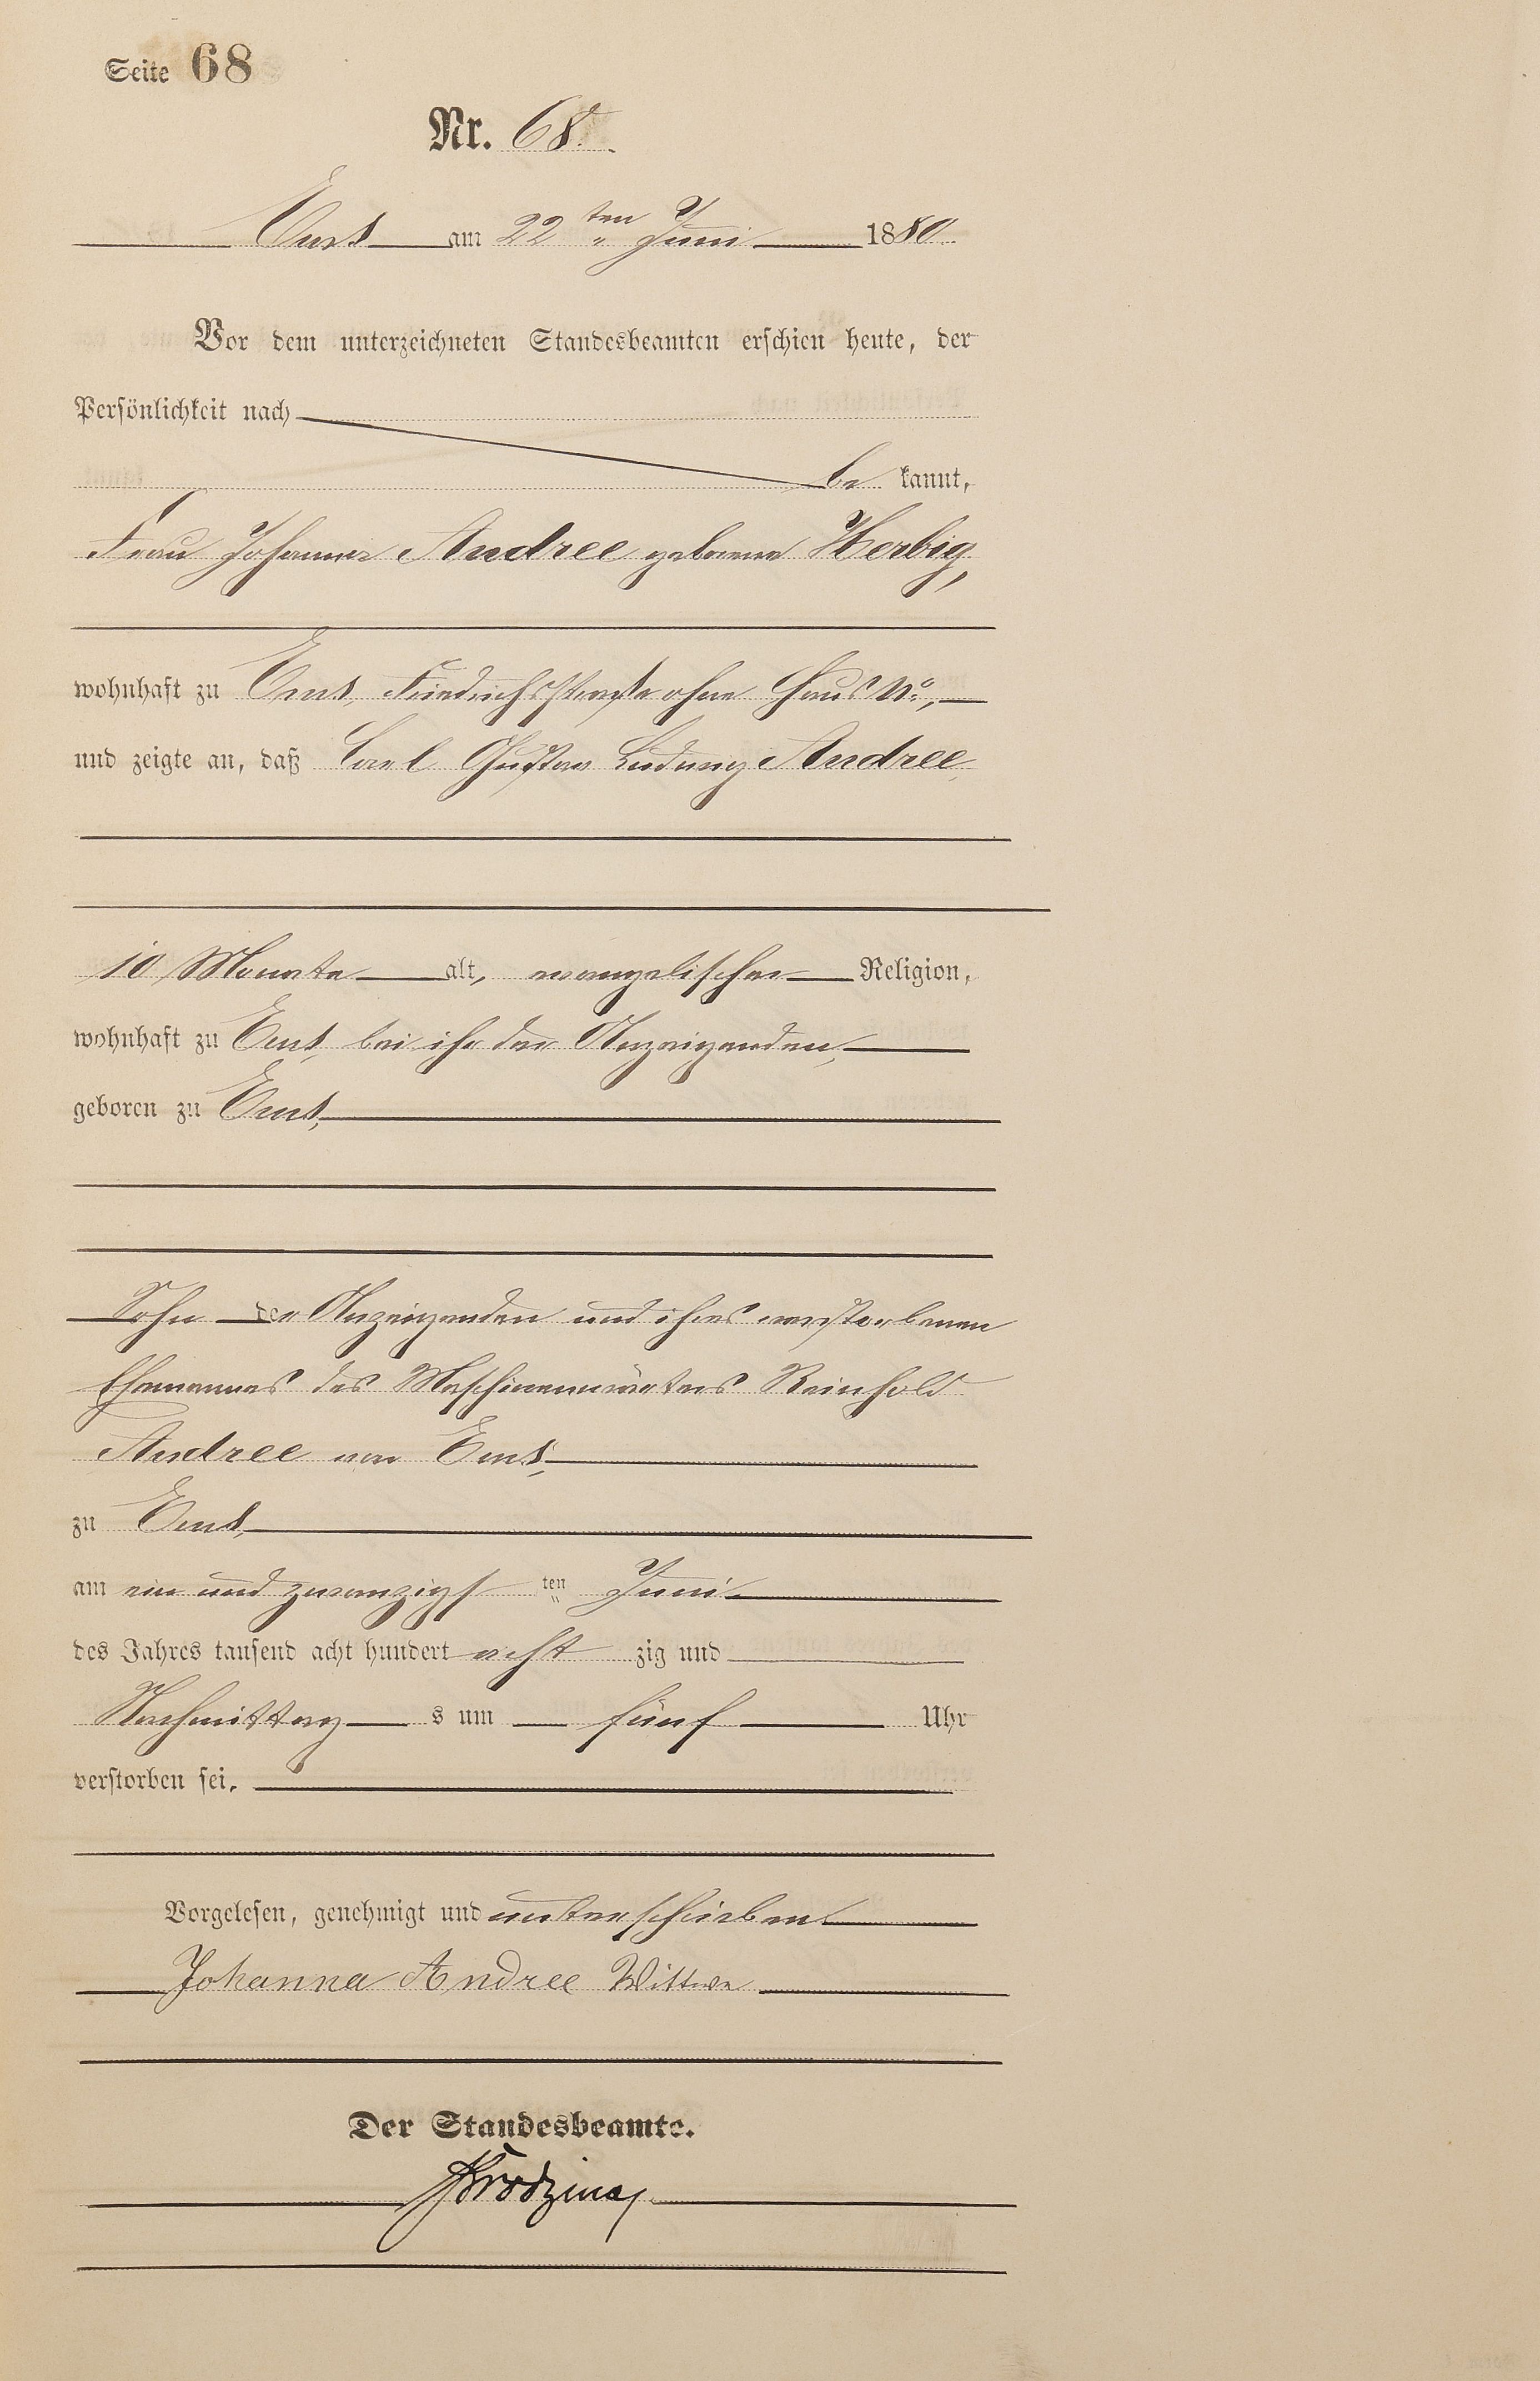 Seite 68
Nr. 68.
Ems am 22 ten Juni 1880.
Vor dem unterzeichneten Standesbeamten erschien heute, der
Persönlichkeit nach
be kannt,
Frau Johanna Andree geborene Herbig,
wohnhaft zu Ems, Friedrichsstraße ohne Haus No.,
und zeigte an, daß Carl Gustav Ludwig Andree
10 Monate alt, evangelischer Religion,
wohnhaft zu Ems, bei ihr der Anzeigenden,
geboren zu Ems,
Sohn der Anzeigenden und ihres verstorbenen
Ehemannes des Maschinenwärters Reinhold
Andree von Ems,
zu Ems,
am ein und zwanzigs ten Juni
des Jahres tausend acht hundert acht zig und
Nachmittag s um fünf Uhr
verstorben sei.
Vorgelesen, genehmigt und unterschrieben
Johanna Andree Wittwe
Der Standesbeamte.